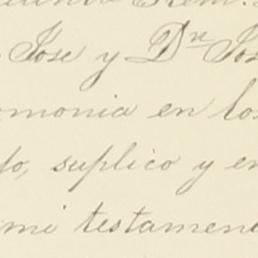 Jose y Dn Jos
monia en los
do, suplico y en
mi testamen